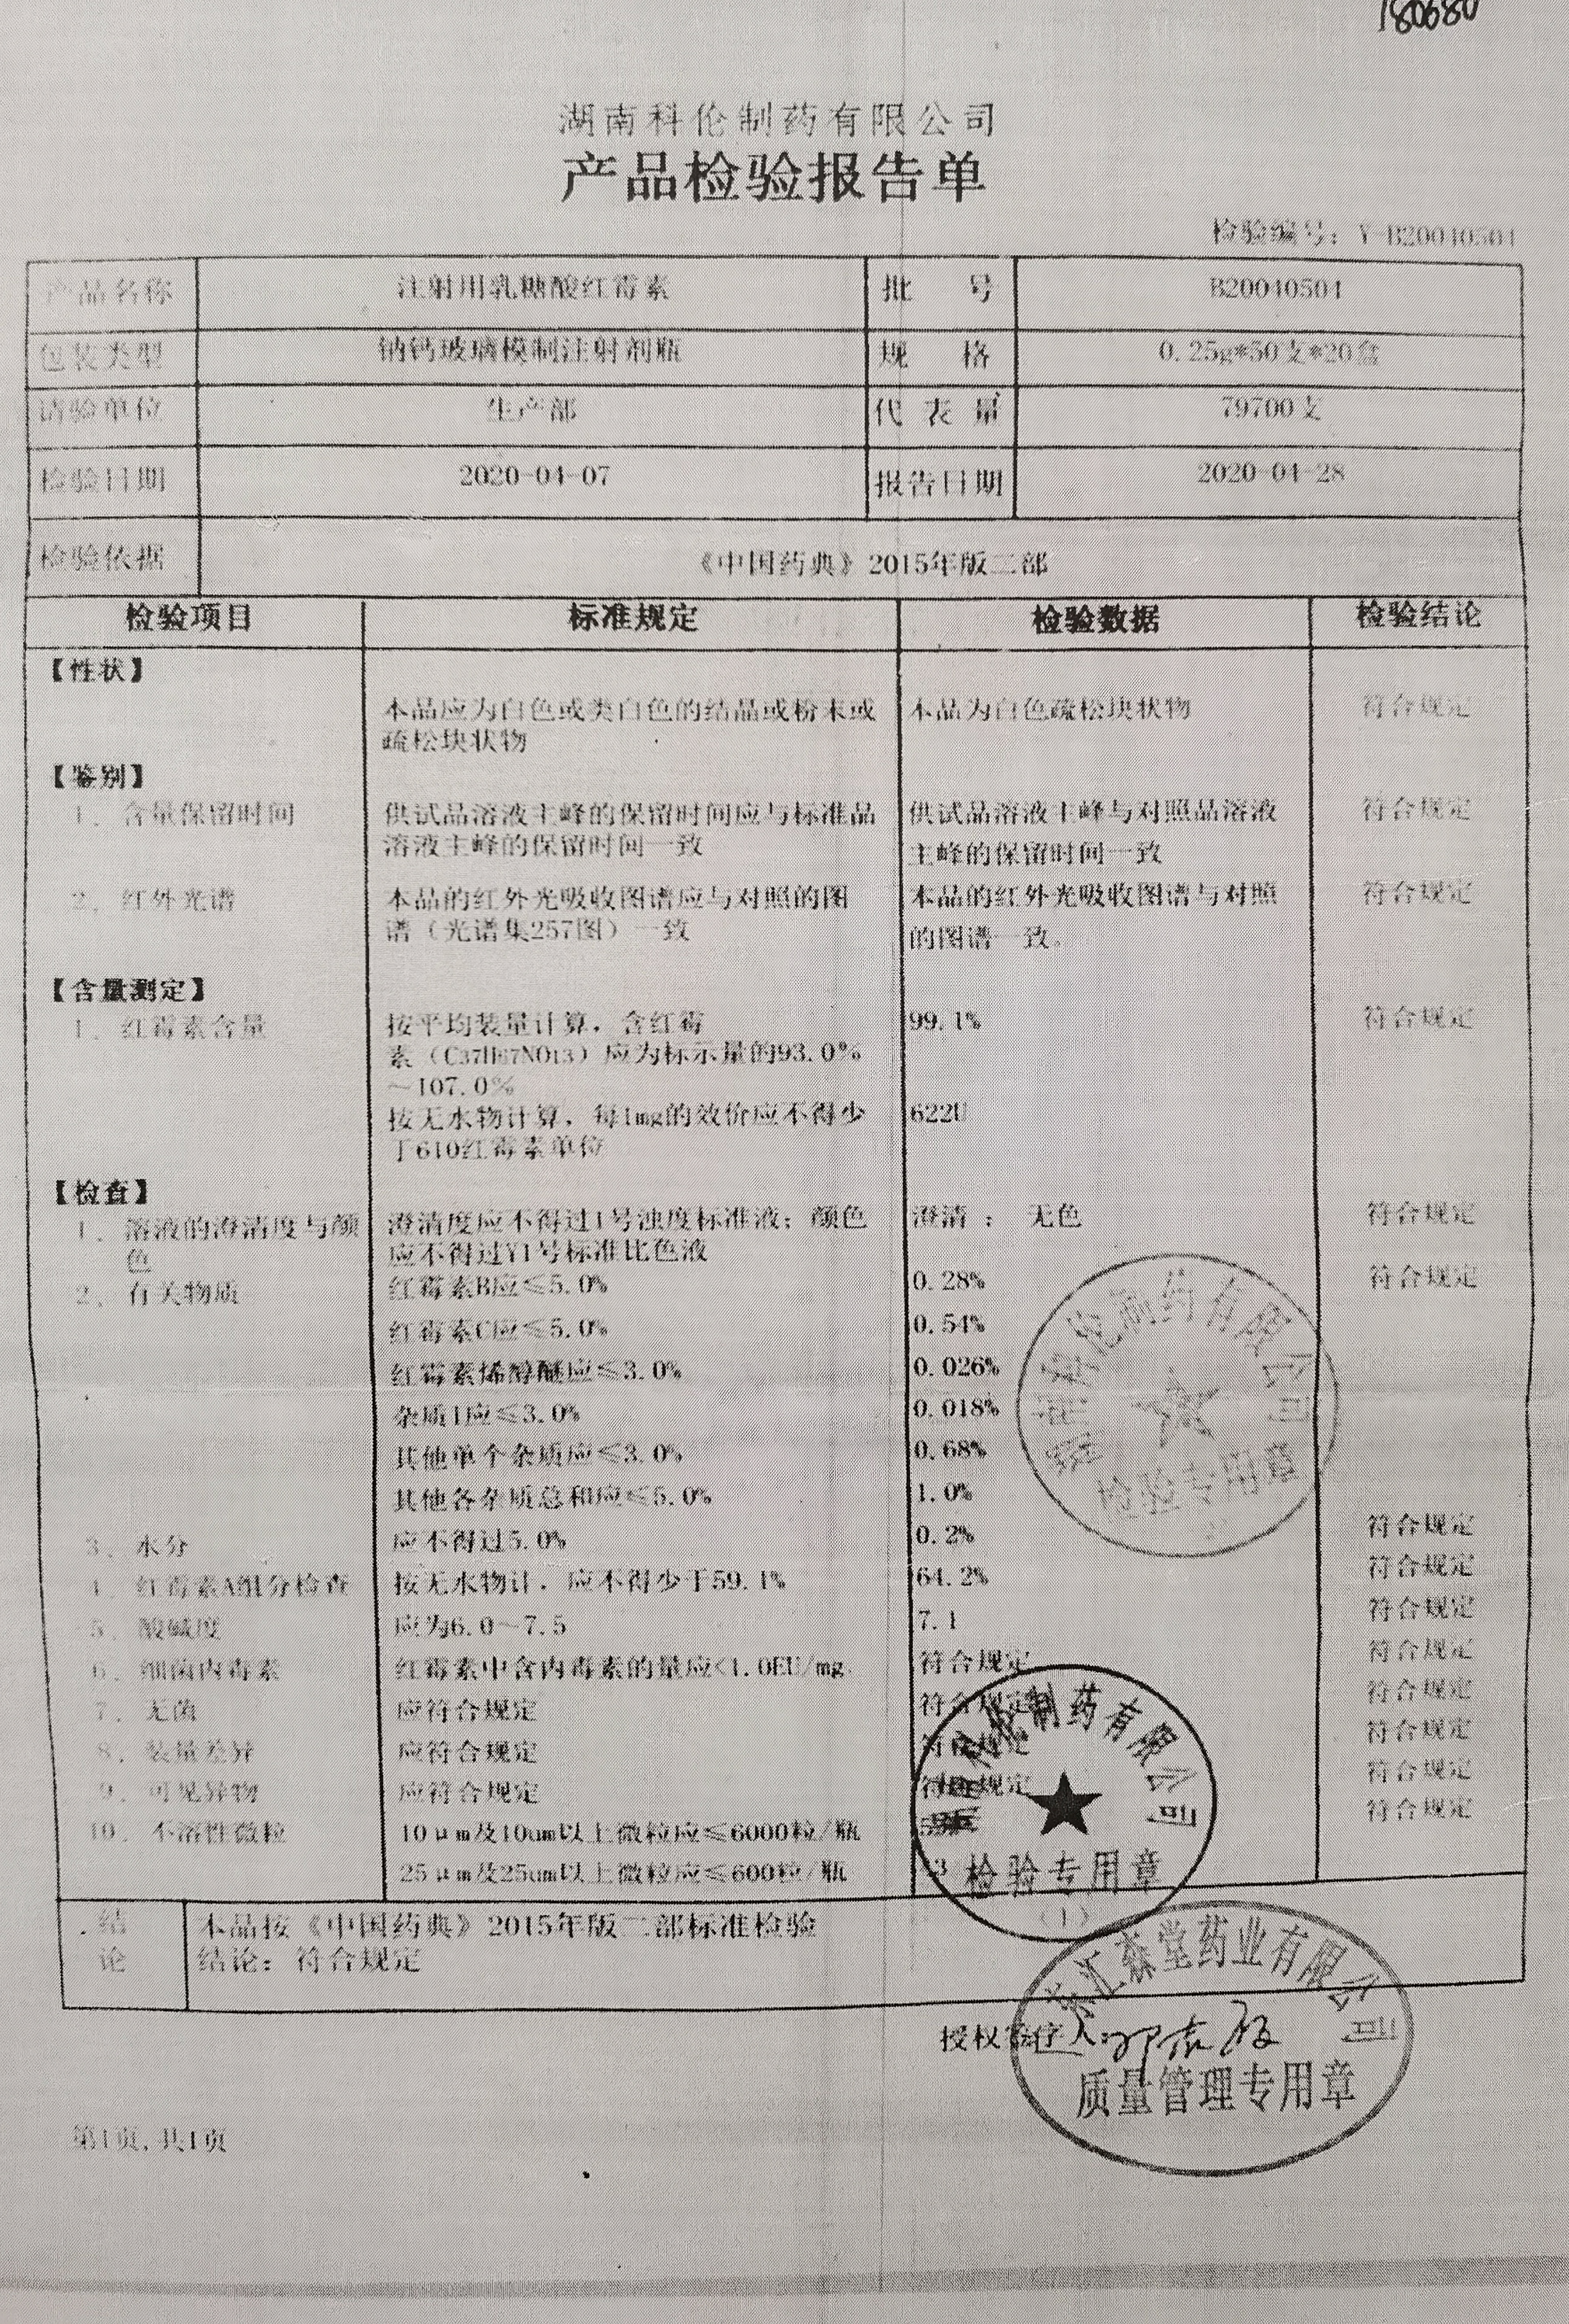 180680
湖南科伦制药有限公司
产品检验报告单
检验编号：Y-B20040504
产品名称 注射用乳糖酸红霉素 批 号 B20040504
包装类型 钠钙玻璃模制注射剂瓶 规 格 0.25g*50支*20盒
请验单位 生产部 代 表 量 79700支
检验日期 2020-04-07 报告日期 2020-04-28
检验依据 《中国药典》2015年版二部
检验项目 标准规定 检验数据 检验结论
【性状】
本品应为白色或类白色的结晶或粉末或 本品为白色疏松块状物 符合规定
疏松块状物
【鉴别】
1. 含量保留时间 供试品溶液主峰的保留时间应与标准品 供试品溶液主峰与对照品溶液 符合规定
溶液主峰的保留时间一致 主峰的保留时间一致
2. 红外光谱 本品的红外光吸收图谱应与对照的图 本品的红外光吸收图谱与对照 符合规定
谱（光谱集257图）一致 的图谱一致。
【含量测定】
1. 红霉素含量 按平均装量计算，含红霉 99.1% 符合规定
素（C37H67NO13）应为标示量的93.0%
～107.0%
按无水物计算，每1mg的效价应不得少 622U
于610红霉素单位
【检查】
1. 溶液的澄清度与颜 澄清度应不得过1号浊度标准液；颜色 澄清 ； 无色 符合规定
色 应不得过Y1号标准比色液
2. 有关物质 红霉素B应≤5.0% 0.28% 符合规定
红霉素C应≤5.0% 0.54%
红霉素烯醇醚应≤3.0% 0.026%
杂质1应≤3.0% 0.018%
其他单个杂质应≤3.0% 0.68%
其他各杂质总和应≤5.0% 1.0%
3. 水分 应不得过5.0% 0.2% 符合规定
4. 红霉素A组分检查 按无水物计，应不得少于59.1% 64.2% 符合规定
5. 酸碱度 应为6.0～7.5 7.1 符合规定
6. 细菌内毒素 红霉素中含内毒素的量应<1.0EU/mg. 符合规定 符合规定
7. 无菌 应符合规定 符合规定 符合规定
8. 装量差异 应符合规定 符合规定 符合规定
9. 可见异物 应符合规定 符合规定 符合规定
10. 不溶性微粒 10μm及10um以上微粒应≤6000粒/瓶 符合规定
25μm及25um以上微粒应≤600粒/瓶
科伦制药有限公司
检验专用章
科伦制药有限公司
检验专用章
（1）
结论 本品按《中国药典》2015年版二部标准检验
结论：符合规定
授权签任人:
汇森堂药业有限公司
质量管理专用章
第1页,共1页